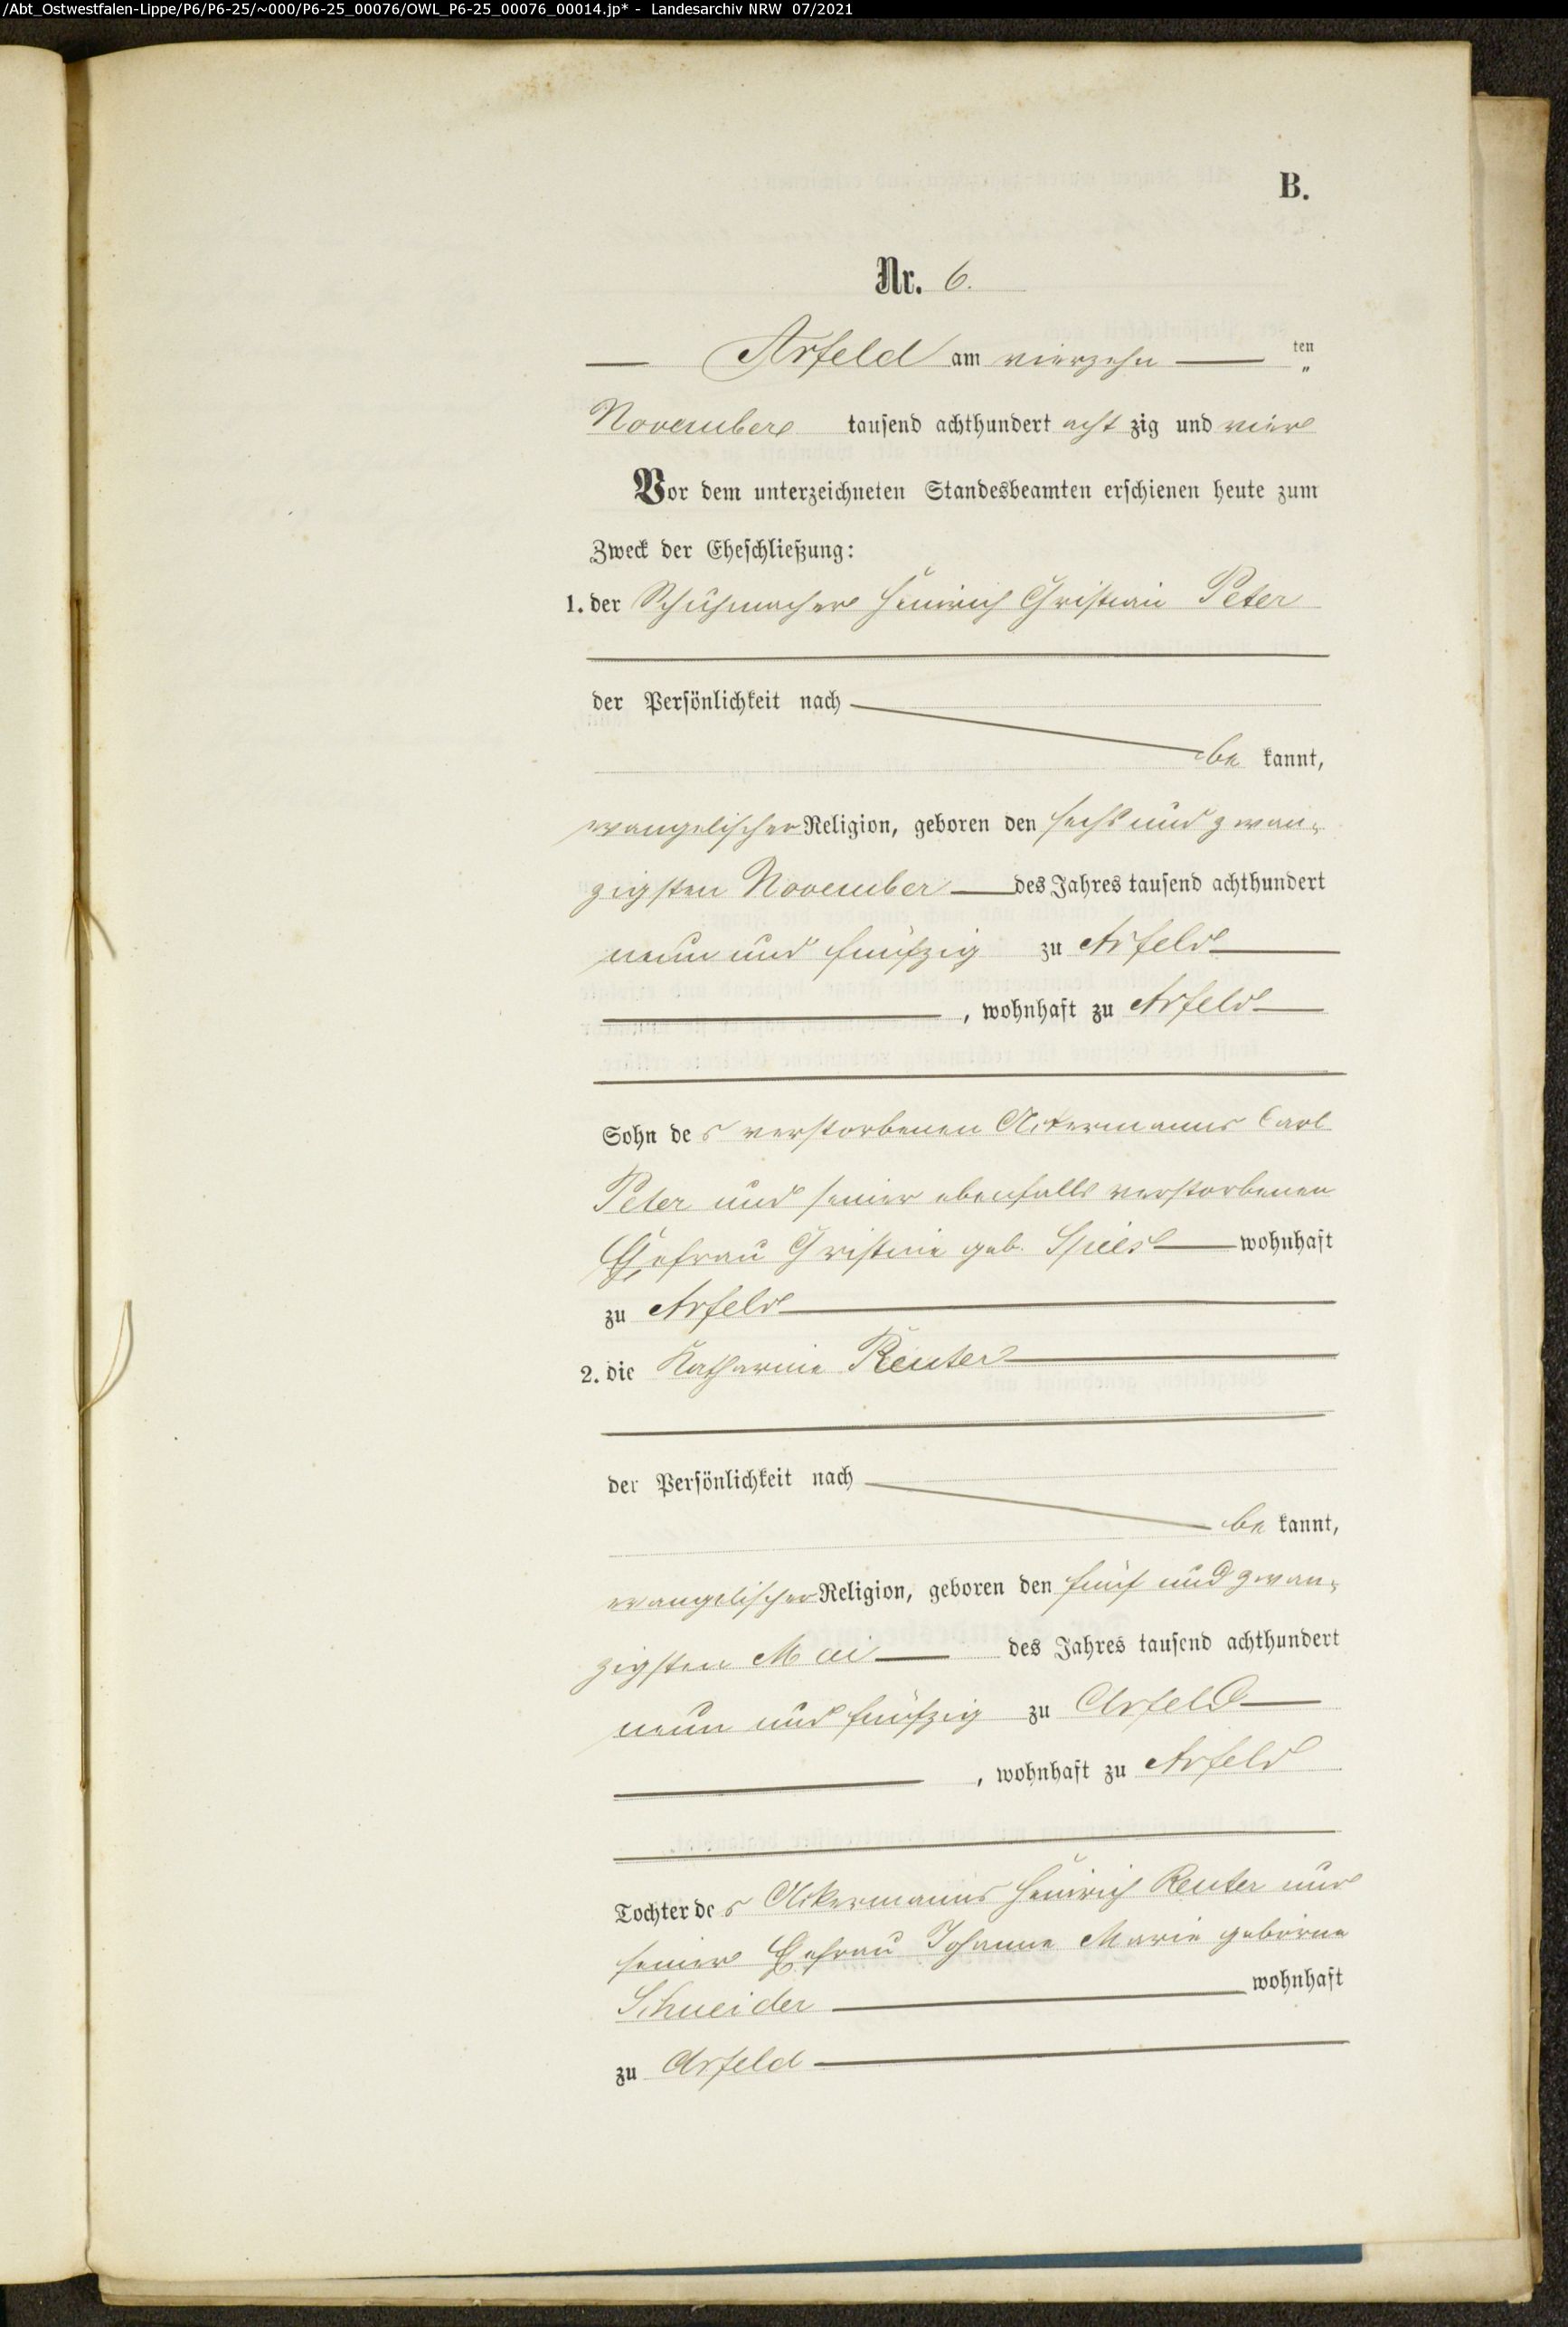 /Abt_Ostwestfalen-Lippe/P6/P6-25/~000/P6-25_00076/OWL_P6-25_00076_00014.jp* - Landesarchiv NRW 07/2021
B.
Nr. 6.
Arfeld am vierzehn ten
November tausend achthundert acht zig und vier
Vor dem unterzeichneten Standesbeamten erschienen heute zum
Zweck der Eheschließung:
1. der Schuhmacher Heinrich Christian Peter
der Persönlichkeit nach
be kannt,
evangelischer Religion, geboren den sechs und zwan-
zigsten November des Jahres tausend achthundert
neun und fünfzig zu Arfeld
, wohnhaft zu Arfeld
Sohn des verstorbenen Ackermanns Carl
Peter und seiner ebenfalls verstorbenen
Ehefrau Christine geb. Spies wohnhaft
zu Arfeld
2. die Katharine Reuter
der Persönlichkeit nach
be kannt,
evangelischer Religion, geboren den fünf und zwan-
zigsten Mai des Jahres tausend achthundert
neun und fünfzig zu Arfeld
, wohnhaft zu Arfeld
Tochter des Ackermanns Heinrich Reuter und
seiner Ehefrau Johanne Marie geborne
Schneider wohnhaft
zu Arfeld